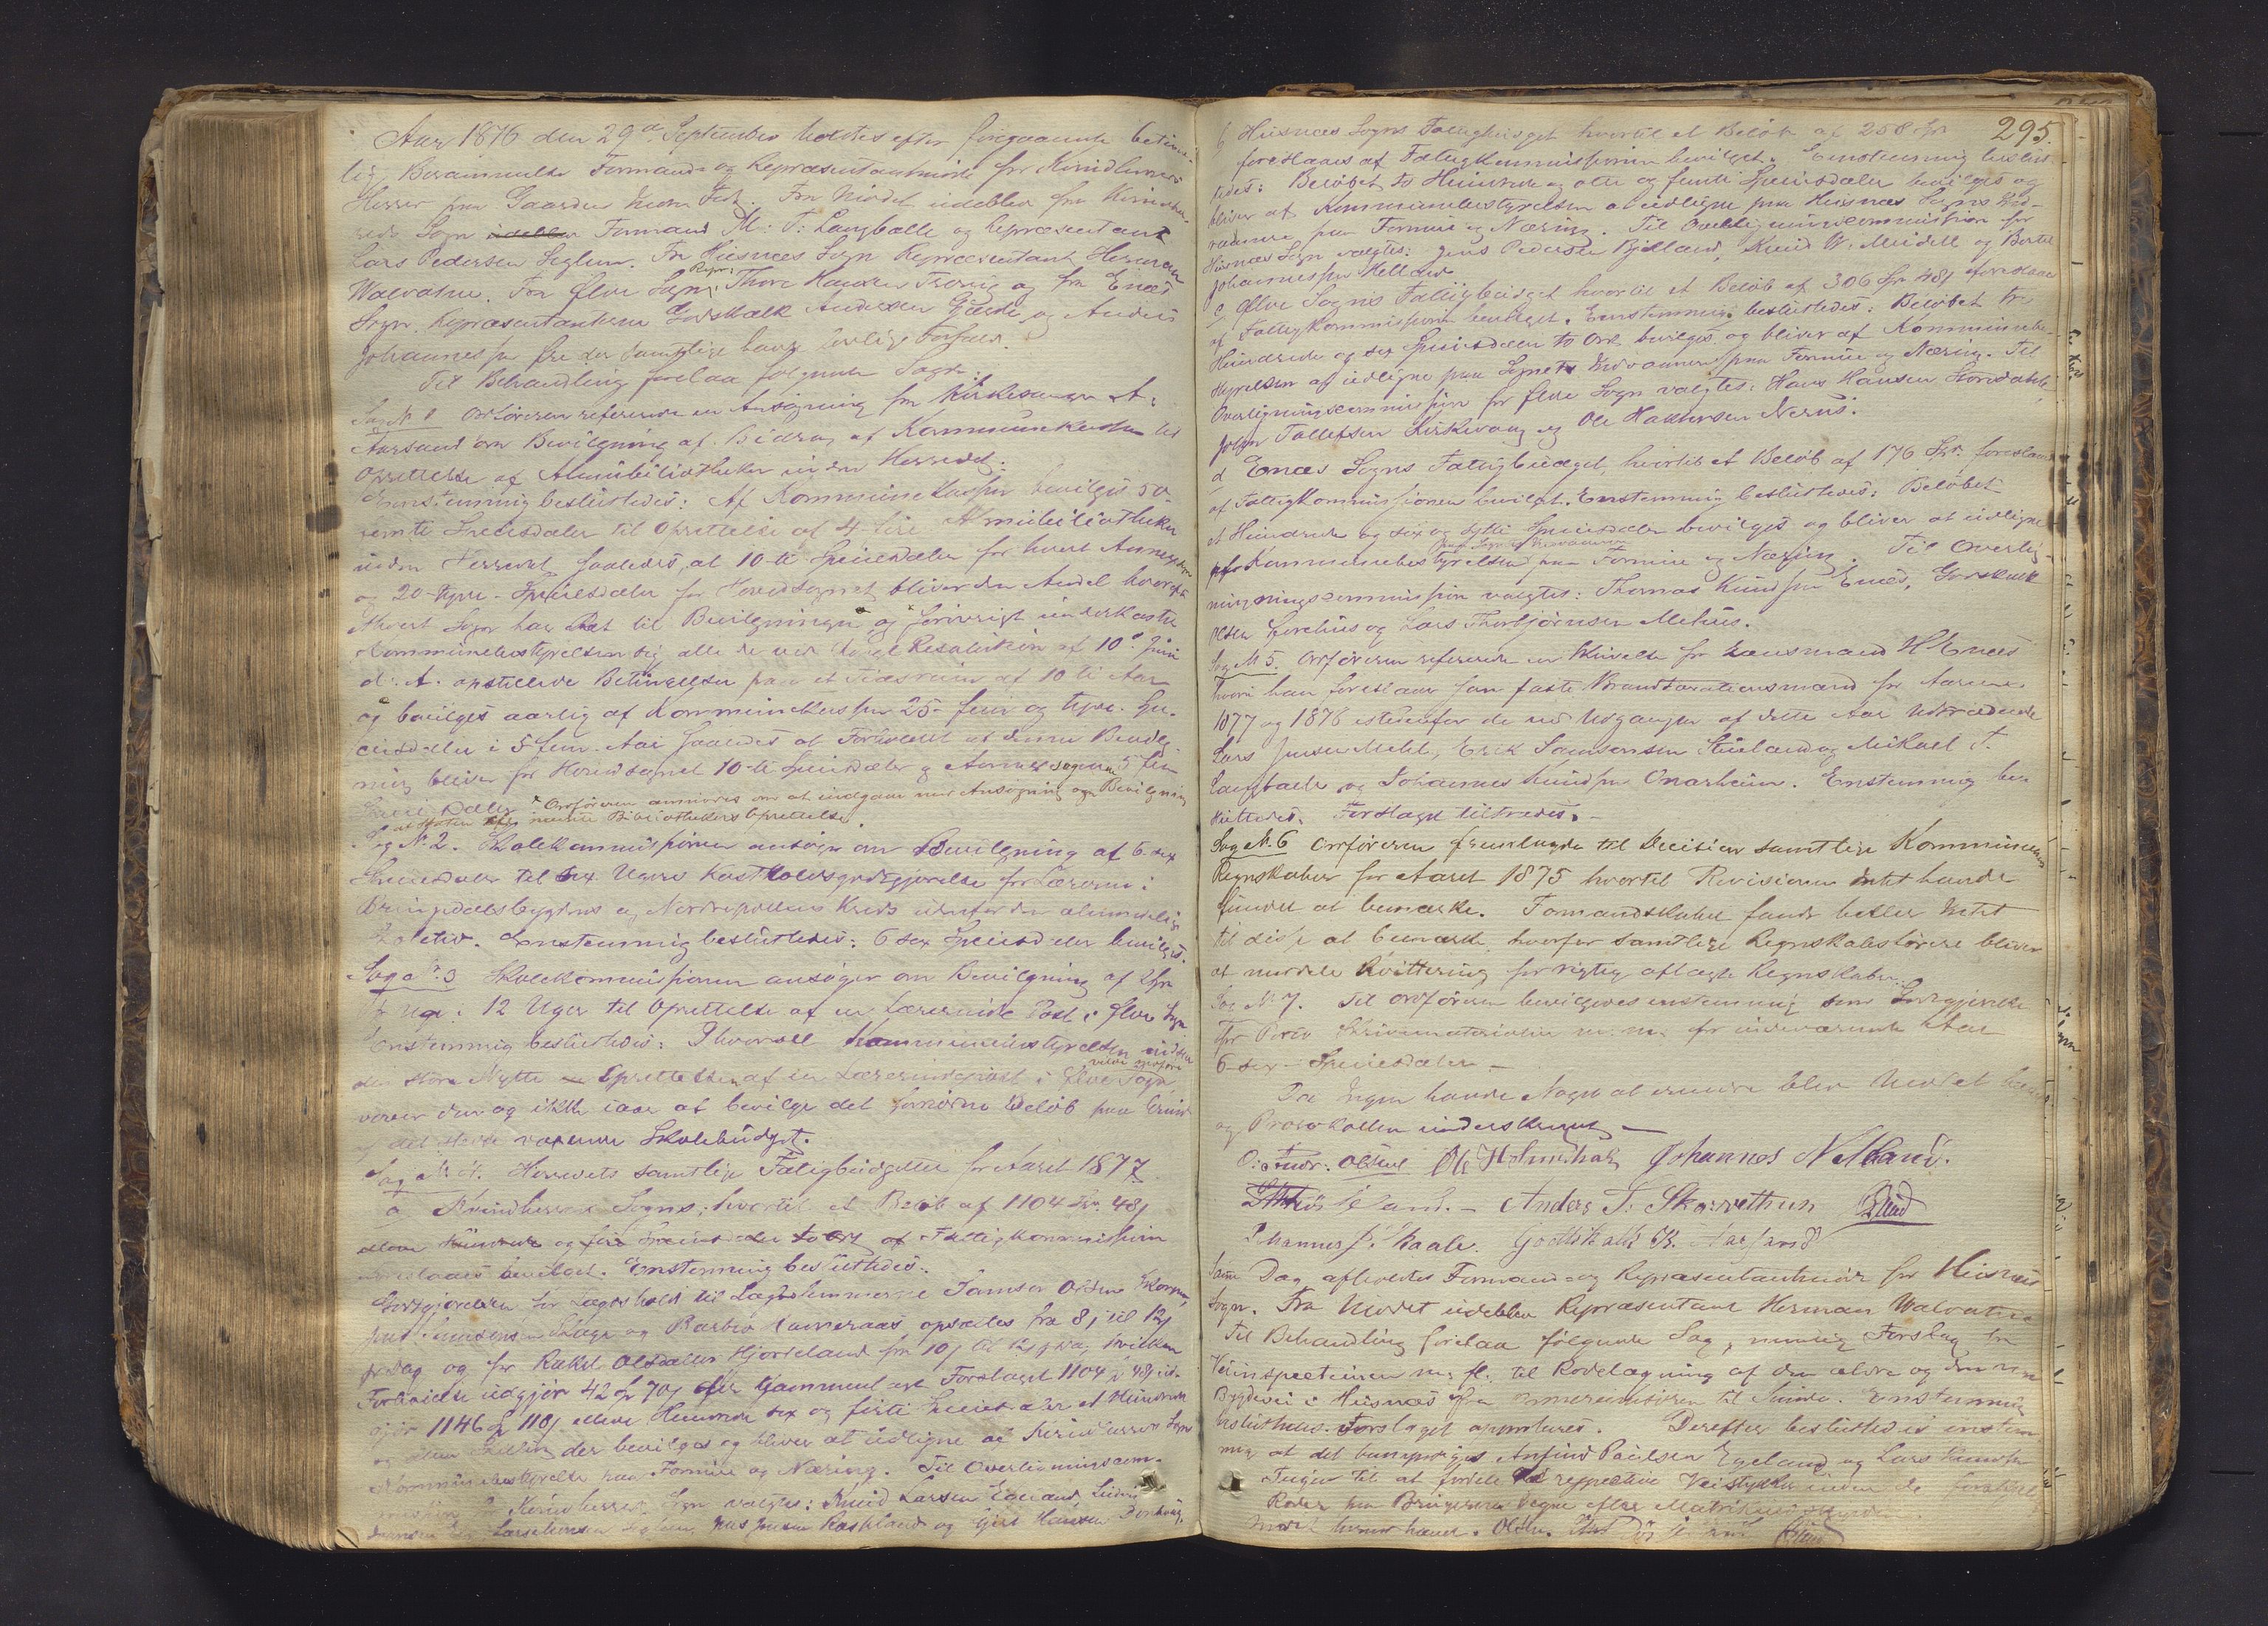 Aar 1876 den 29de September holdtes efter foregaaende betime-
lig Berammelse Formands og Repræsentantmøde for Kvindherreds
Herred paa Gaarden Nedre Fet. Fra Mødet udeblev fra Kvindher-
reds Sogn Formand M: T: Langballe og Repræsentant
Lars Pedersen Seglem. Fra Husnæs Sogn Repræsentant Herman
Walvatne. Fra Ølve Sogn Repr: Thore Hansen Tvereie og fra Enæs
Sogn Repræsentanterne Godskalk Andersen Gjerde og Anders
Johannessen Øie der samtlige havde lovlige Forfald.
Til Behandling forelaa følgende Sager:
Sag No 1 Ordføreren refererede en Ansøgning fra Kirkesanger A:
Aarsand om Bevilgning af Bidrag af Kommunekassen til
Oprettelse af Almuebibliotheker inden Herredet:
Enstemmig besluttedes: Af Kommunekassen bevilges 50-
femti Speciesdaler til Oprettelse af 4 fire Almuebibliotheker
inden Herredet saaledes, at 10-ti Speciesdaler for hvert Annexsogn
og 20-tyve-Speciesdaler for Hovedsognet bliver den Andel hvorpaa
ethvert Sogn har Ret til Bevilgningen og forøvrigt underkaster
Kommunebestyrelsen sig alle de ved Kongl Resolution af 10de Juni
d: A: opstillede Betingelser paa et Tidsrum af 10 ti Aar
og bevilges aarlig af Kommunekassen 25- fem og tyve- Spe-
ciesdaler i 5 fem- Aar saaledes at Forholdet af denne Bevilg-
ning bliver for Hovedsognet 10-ti Speciesdaler og Annexsognene 5 fem
Speciesdaler × Ordføreren anmodes om at indgaae med Ansøgning om Bevilgning
af Staten til nævnte Bibliothekers Oprettelse.
Sag No 2. Skolekommissionen ansøger om Bevilgning af 6- sex
Speciesdaler til sex Ugers Kostholdsgodtgjørelse for Læreren i
Bringedalsbygdens og Nordrepollens Kreds udenfor den almindelige
Skoletid. Enstemmig besluttedes: 6 sex Speciesdaler bevilges.
Sag No 3 Skolekommissionen ansøger om Bevilgning af 2 Spd
pr Uge i 12 Uger til Oprettelse af en Lærerinde Post i Ølve Sogn
Enstemmig besluttedes: I hvorvel Kommunebestyrelsen indser
den store Nytte Oprettelsen af en Lærerindepost i Ølve Sogn vilde medføre
vover den og ikke iaar at bevilge det fornødne Beløb paa Grund
af det store Skolebudget.
Sag No 4. Herredets samtlige Fattigbudgetter for Aaret 1877
a, Kvindherreds Sogns, hvortil et Beløb af 1104 Spd 48 s
elleve Hundrede og fire Speciesdaler to Ort af Fattigkommissionen
foreslaaes bevilget. Enstemmig besluttedes:
Godtgjørelsen for Lægdshold til Lægdslemmerne Samson Olsen Skorpen,
Skaga og Barbro Kameraas opsættes fra 8 s til 12 s
pr Dag og for Rakel Olsdatter Hjorteland fra 10 s til 12 s pr Dag, hvilken
Forhøielse udgjør 42 Spd 70 s eller Sammenlagt Forslaget 1104 Spd 48 s ud-
gjør 1146 Spd 118 s elleve Hundrede sex og firti Speciesdaler et Hundrede
og atten Skilling der bevilges og bliver at udligne af Kvindherreds Sogns
Kommunebestyrelse paa Formue og Næring. Til Overligningscom-
mission for Kvindherreds Sogn valgtes: Knud Larsen Egeland,
Lars Larsen, Jens Jensen Røsseland og Giert Hansen
295.
b Husnæs Sogns Fattigbudget hvortil et Beløb af 258 Spd
foreslaaes af Fattigkommissionen bevilget. Enstemmig beslut-
tedes: Beløbet to Hundrede og otte og femti Speciesdaler bevilges og
bliver af Kommunebestyrelsen at udligne paa Husnæs Sogns Ved-
kommende paa Formue og Næring. Til Overligningscommission for
Husnæs Sogn valgtes: Jens Pedersen Bjelland, Knud W. Meidell og Bertel
Johannessen Helland
c Ølve Sogns Fattigbudget hvortil et Beløb af 306 Spd 48 s foreslaaes
af Fattigkommissionen bevilget. Enstemmig besluttedes: Beløbet tre
Hundrede og sex Speciesdaler to Ort bevilges og bliver af Kommunebe-
styrelsen at udligne paa Sognets Vedkommende paa Formue og Næring. Til
Overligningscommission for Ølve Sogn valgtes: Hans Hansen Storedahle,
John Tollefsen Kirkevaag og Ole Haktorsen Nerhus.
d Enæs Sogns Fattigbudget, hvortil et Beløb af 176 Spd: foreslaaes
af Fattigkommissionen bevilget. Enstemmig besluttedes: Beløbet
et Hundrede og sex og sytti Speciesdaler bevilges og bliver at udligne
af Kommunebestyrelsen paa Formue og Næring. Til Overlig-
ningscommission valgtes: Thomas Knudsen Enæs, Godskalk
Olsen Evrehus og Lars Thorbjørnsen Mehus.
Sag No 5. Ordføreren refererede en Skrivelse fra Lensmand H Enæs
hvori han foreslaar som faste Brandtaxationsmænd for Aarene
1877 og 1878 istedenfor de ved Udgangen af dette Aar Udtrædende
Lars Jensen Mehl, Erik Samsonsen Stueland og Mikael T.
Langballe og Johannes Knudsen Onarheim. Enstemmig be-
sluttedes. Forslaget tiltrædes.-
Sag No 6 Ordføreren fremlagde til Decision samtlige Kommunens
Regnskaber for Aaret 1875 hvortil Revisionen Intet havde
fundet at bemærke. Formandskabet fandt heller Intet
til disse at bemærke, hvorfor samtlige Regnskabsførere bliver
at meddele Kvittering for rigtig aflagte Regnskaber.
Sag No 7. Til Ordføreren bevilgedes enstemmig som Godtgjørelse
for Porto Skrivematerialier m: m: for indeværende Aar
6- sex- Speciesdaler -
Da Ingen havde Noget at erindre blev Mødet hævet
og Protokollen underskreven -
O: Andr: Olsen Ole Holmedahl Johannes N Helland.
Anders T. Skarvethun
Johannes J. Kaale. Godtskalk K. Aarsand
Samme Dag afholdtes Formands og Repræsentantmøde for Husnæs
Sogn. Fra Mødet udeblev Repræsentant Herman Walvatne
Til Behandling forelaa følgende Sag, nemlig Forslag fra
Veiinspecteuren m: fl. til Rodelægning af den ældre og den nye
Bygdevei i Husnæs fra til Sunde. Enstemmig
besluttedes. Forslaget approberes. Derefter besluttedes enstem-
mig at det Anfind Poulsen Egeland og Lars Knudsen
til at fordele de respective Veistykker inden de forskjellige
Roder paa Brugerne Vegne efter Matrikulskylden
Mødet hermed hævet. Olsen.